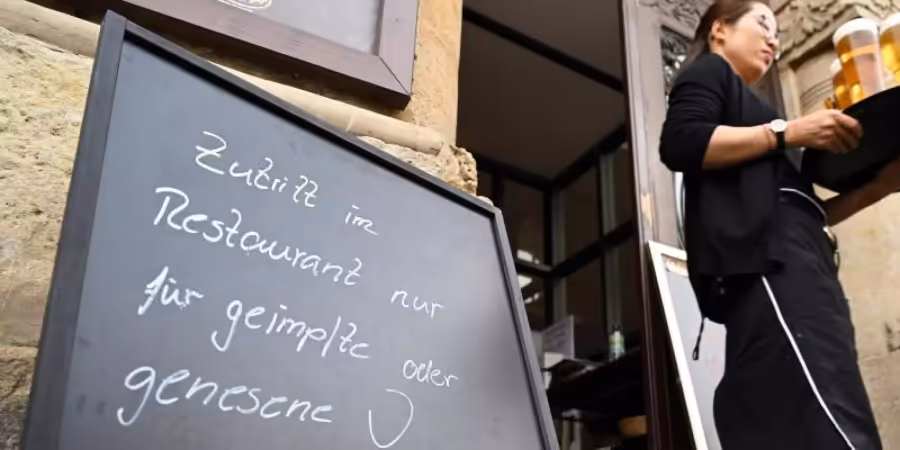 Zutritt im
Restaurant nur
für geimpfte oder
genesene